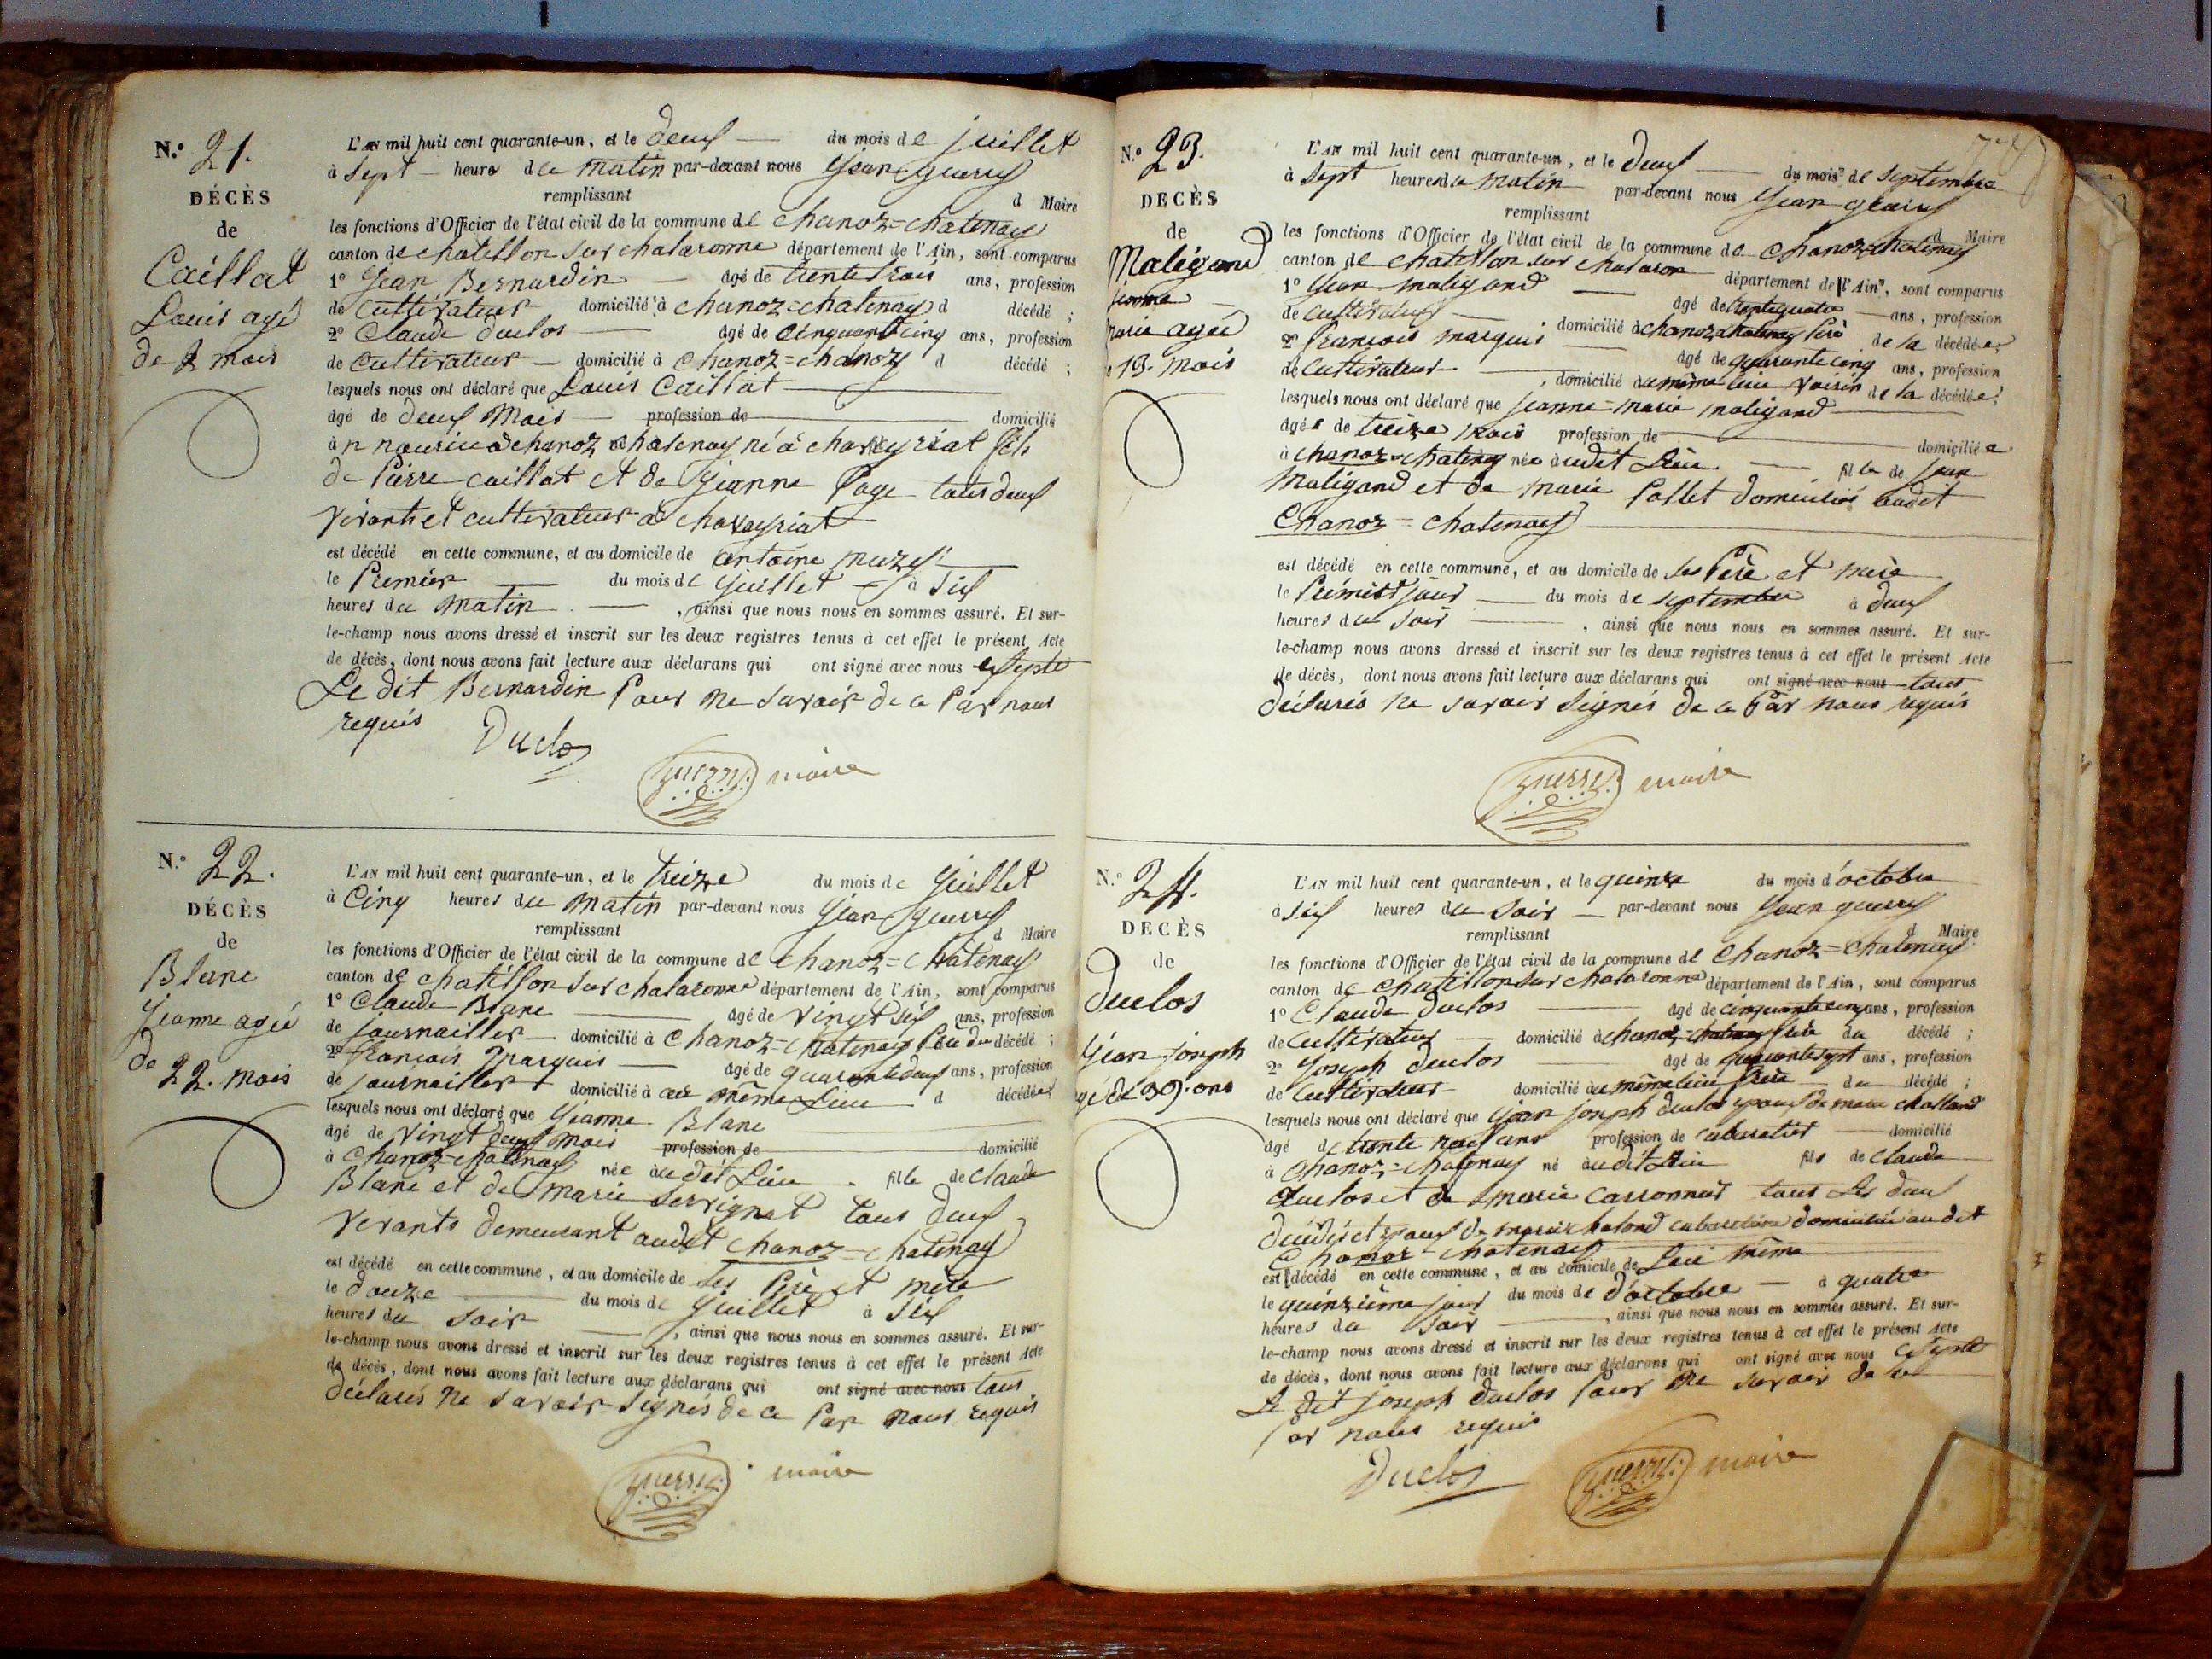 N.° 21.
DÉCÈS
de
Caillat
Louis agé
de 2 mois
L'AN mil huit cent quarante-un, et le deux du mois de juillet
à Sept heures du matin par-devant nous Jean Guerry
remplissant d Maire
les fonctions d'Officier de l'état civil de la commune de Chanoz=Chatenay
canton de chatillon sur chalaronne département de l'Ain, sont comparus
1° Jean Bernardin âgé de trente trois ans, profession
de Cultivateur domicilié à chanoz=chatenay d décédé ;
2° Claude duclos âgé de Cinquante cinq ans, profession
de Cultivateur domicilié à Chanoz=chanoz d décédé ;
lesquels nous ont déclaré que Louis Caillat
âgé de deux Mois profession de domicilié
à n nourice à chanoz chatenay né à chaveyriat fils
de Pierre caillat et de Jeanne Page tous deux
vivants et cultivateur a chaveyriat
est décédé en cette commune, et au domicile de antoine muzy
le Premier du mois de Juillet à Six
heures du matin , ainsi que nous nous en sommes assuré. Et sur-
le-champ nous avons dressé et inscrit sur les deux registres tenus à cet effet le présent Acte
de décès, dont nous avons fait lecture aux déclarans qui ont signé avec nous excepté
Le dit Bernardin Pour ne savoir de ce Par nous
requis
Duclos
guerry maire
N.° 22.
DÉCÈS
de
Blanc
Jeanne agée
de 22. mois
L'AN mil huit cent quarante-un, et le treize du mois de Juillet
à Cinq heures du matin par-devant nous Jean Guerry
remplissant d Maire
les fonctions d'Officier de l'état civil de la commune de Chanoz=Chatenay
canton de chatillon sur chalaronne département de l'Ain, sont comparus
1° Claude Blanc âgé de vingt six ans, profession
de journaillier domicilié à Chanoz=Chatenay Pere du décédé ;
2° francois Marquis âgé de quarante deux ans, profession
de journaillier domicilié à au même Lieu d décédée
lesquels nous ont déclaré que Jeanne Blanc
âgé de vingt deux mois profession de domicilié
à Chanoz-chatenay née au dit Lieu fille de Claude
Blanc et de marie servignat tous deux
vivants demeurant audit chanoz=chatenay
est décédé en cette commune, et au domicile de ses Père et mère
le douze du mois de Juillet à Six
heures du soir , ainsi que nous nous en sommes assuré. Et sur-
le-champ nous avons dressé et inscrit sur les deux registres tenus à cet effet le présent Acte
de décès, dont nous avons fait lecture aux déclarans qui ont signé avec nous tous
déclarés ne savoir signés de ce Par nous requis
guerry maire
N.° 23.
DÉCÈS
de
Maligand
jeanne
marie agée
de 13. mois
L'AN mil huit cent quarante-un, et le deux du mois de septembre
à Sept heures du matin par-devant nous Jean guerry
remplissant d Maire
les fonctions d'Officier de l'état civil de la commune de Chanoz Chatenay
canton de chatillon sur chalaron département de l'Ain, sont comparus
1° Jean maligand âgé de trente quatre ans, profession
de cultivateur domicilié à chanoz chatenay Père de la décédée
2° francois marquis âgé de quarante cinq ans, profession
de Cultivateur , domicilié au même lieu voisin de la décédée;
lesquels nous ont déclaré que jeanne-marie maligand
âgée de treize mois profession de domiciliée
à chanoz-chatenay née audit Lieu fille de jean
maligand et de marie Pollet domiciliés audit
Chanoz=chatenay
est décédé en cette commune, et au domicile de ses Père et mère
le Premier jour du mois de septembre à deux
heures du soir , ainsi que nous nous en sommes assuré. Et sur-
le-champ nous avons dressé et inscrit sur les deux registres tenus à cet effet le présent Acte
de décès, dont nous avons fait lecture aux déclarans qui ont signé avec nous tous
déclarés ne savoir signés de ce Par nous requis
guerry maire
N.° 24.
DÉCÈS
de
duclos
Jean joseph
agé de 39. ans
L'AN mil huit cent quarante-un, et le quinze du mois d'octobre
à Six heures du soir par-devant nous Jean guerry
remplissant d Maire
les fonctions d'Officier de l'état civil de la commune de Chanoz=Chatenay
canton de chatillon sur chalaronne département de l'Ain, sont comparus
1° Claude duclos âgé de cinquante cinq ans, profession
de Cultivateur domicilié à chanoz=chatenay frère du décédé ;
2° Joseph duclos âgé de quarante sept ans, profession
de Cultivateur domicilié au même lieu frère du décédé ;
lesquels nous ont déclaré que Jean joseph duclos epoux de marie challand
âgé de trente neuf ans profession de cabaretier domicilié
à Chanoz=chatenay né audit Lieu fils de Claude
duclos et de marie Carronnier tous les deux
décédés et epoux de marie chaland cabaretière domiciliée au dit
Chanoz-chatenay
est décédé en cette commune, et au domicile de Lui même
le quinzième jour du mois de d'octobre à quatre
heures du soir , ainsi que nous nous en sommes assuré. Et sur-
le-champ nous avons dressé et inscrit sur les deux registres tenus à cet effet le présent Acte
de décès, dont nous avons fait lecture aux déclarans qui ont signé avec nous excepté
Le dit joseph duclos Pour ne savoir de ce
Par nous requis
Duclos
guerry maire